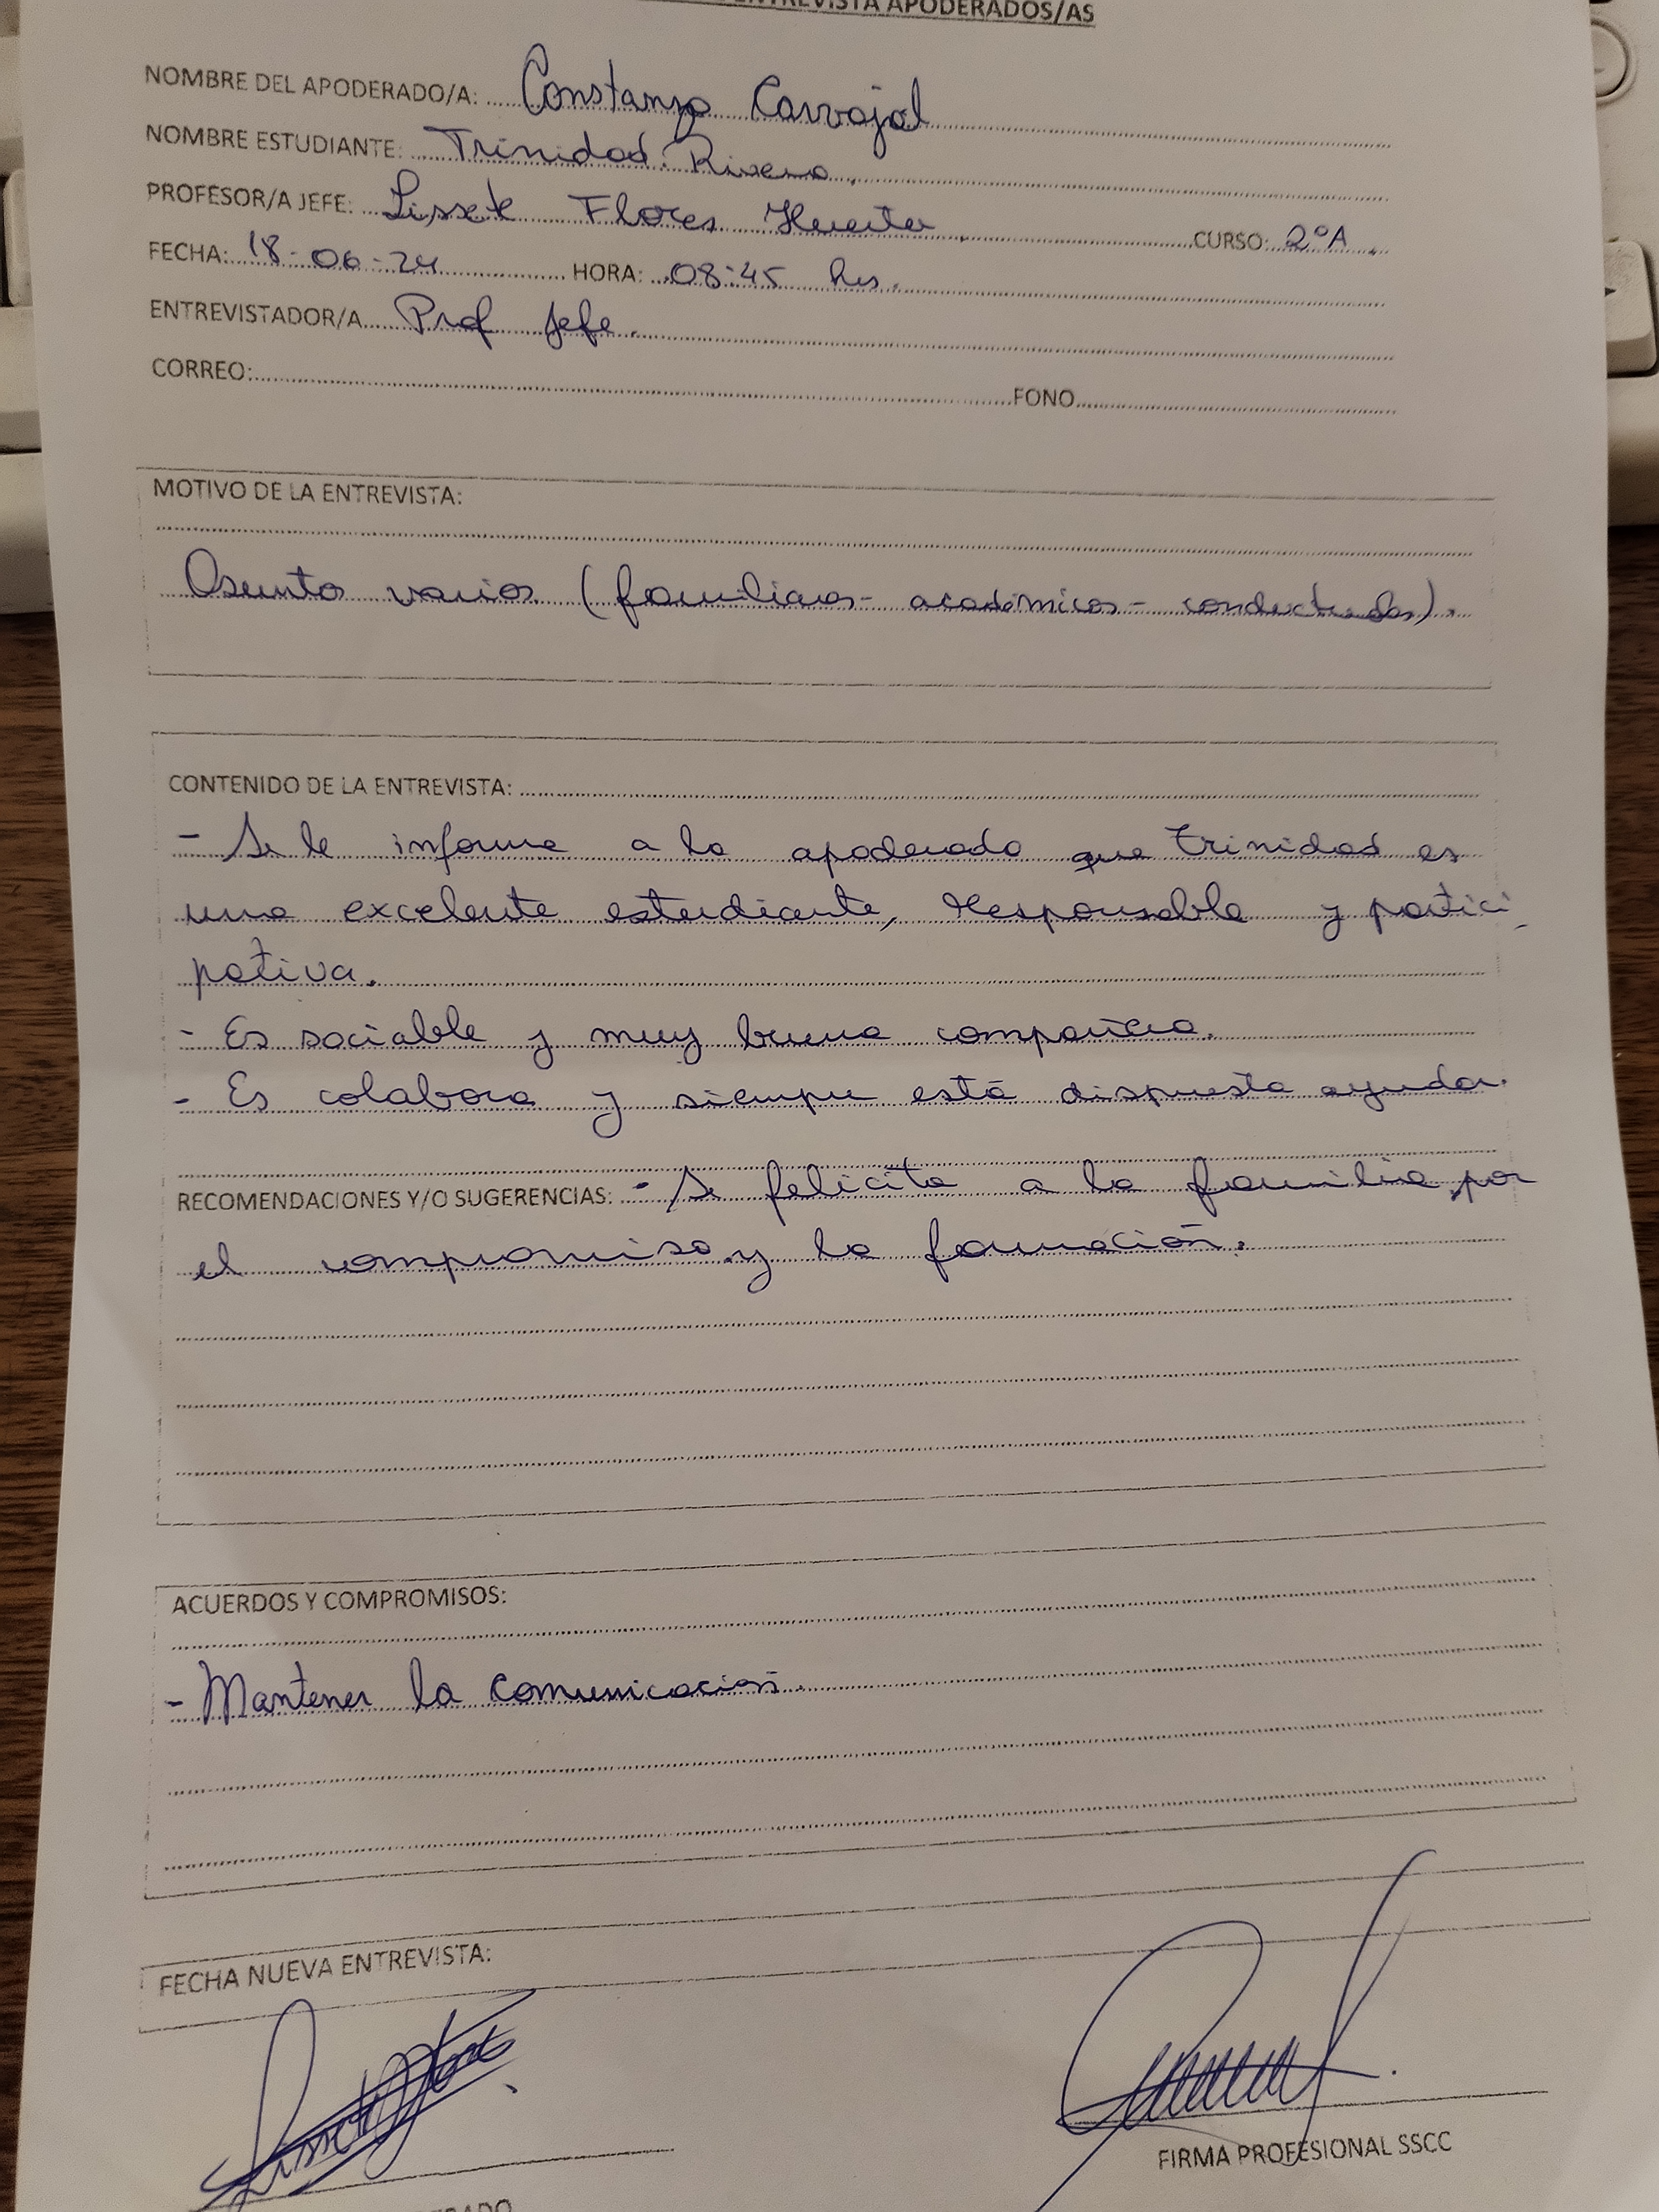 ENTREVISTA APODERADOS/AS
NOMBRE DEL APODERADO/A: Constanza Carvajal
NOMBRE ESTUDIANTE: Trinidad Rivera.
PROFESOR/A JEFE: Lissete Flores Huerta. CURSO: 2°A.
FECHA: 18-06-24 HORA: 08:45 hrs.
ENTREVISTADOR/A Prof Jefe.
CORREO: FONO
MOTIVO DE LA ENTREVISTA:
Asuntos varios (familiares- académicos- conductuales).
CONTENIDO DE LA ENTREVISTA:
- Se le informa a la apoderada que Trinidad es
una excelente estudiante, responsable y partici-
pativa.
- Es sociable y muy buena compañera.
- Es colabora y siempre está dispuesta ayudar.
RECOMENDACIONES Y/O SUGERENCIAS: - Se felicita a la familia por
el compromiso y la formación.
ACUERDOS Y COMPROMISOS:
- Mantener la comunicación.
FECHA NUEVA ENTREVISTA:
FIRMA PROFESIONAL SSCC